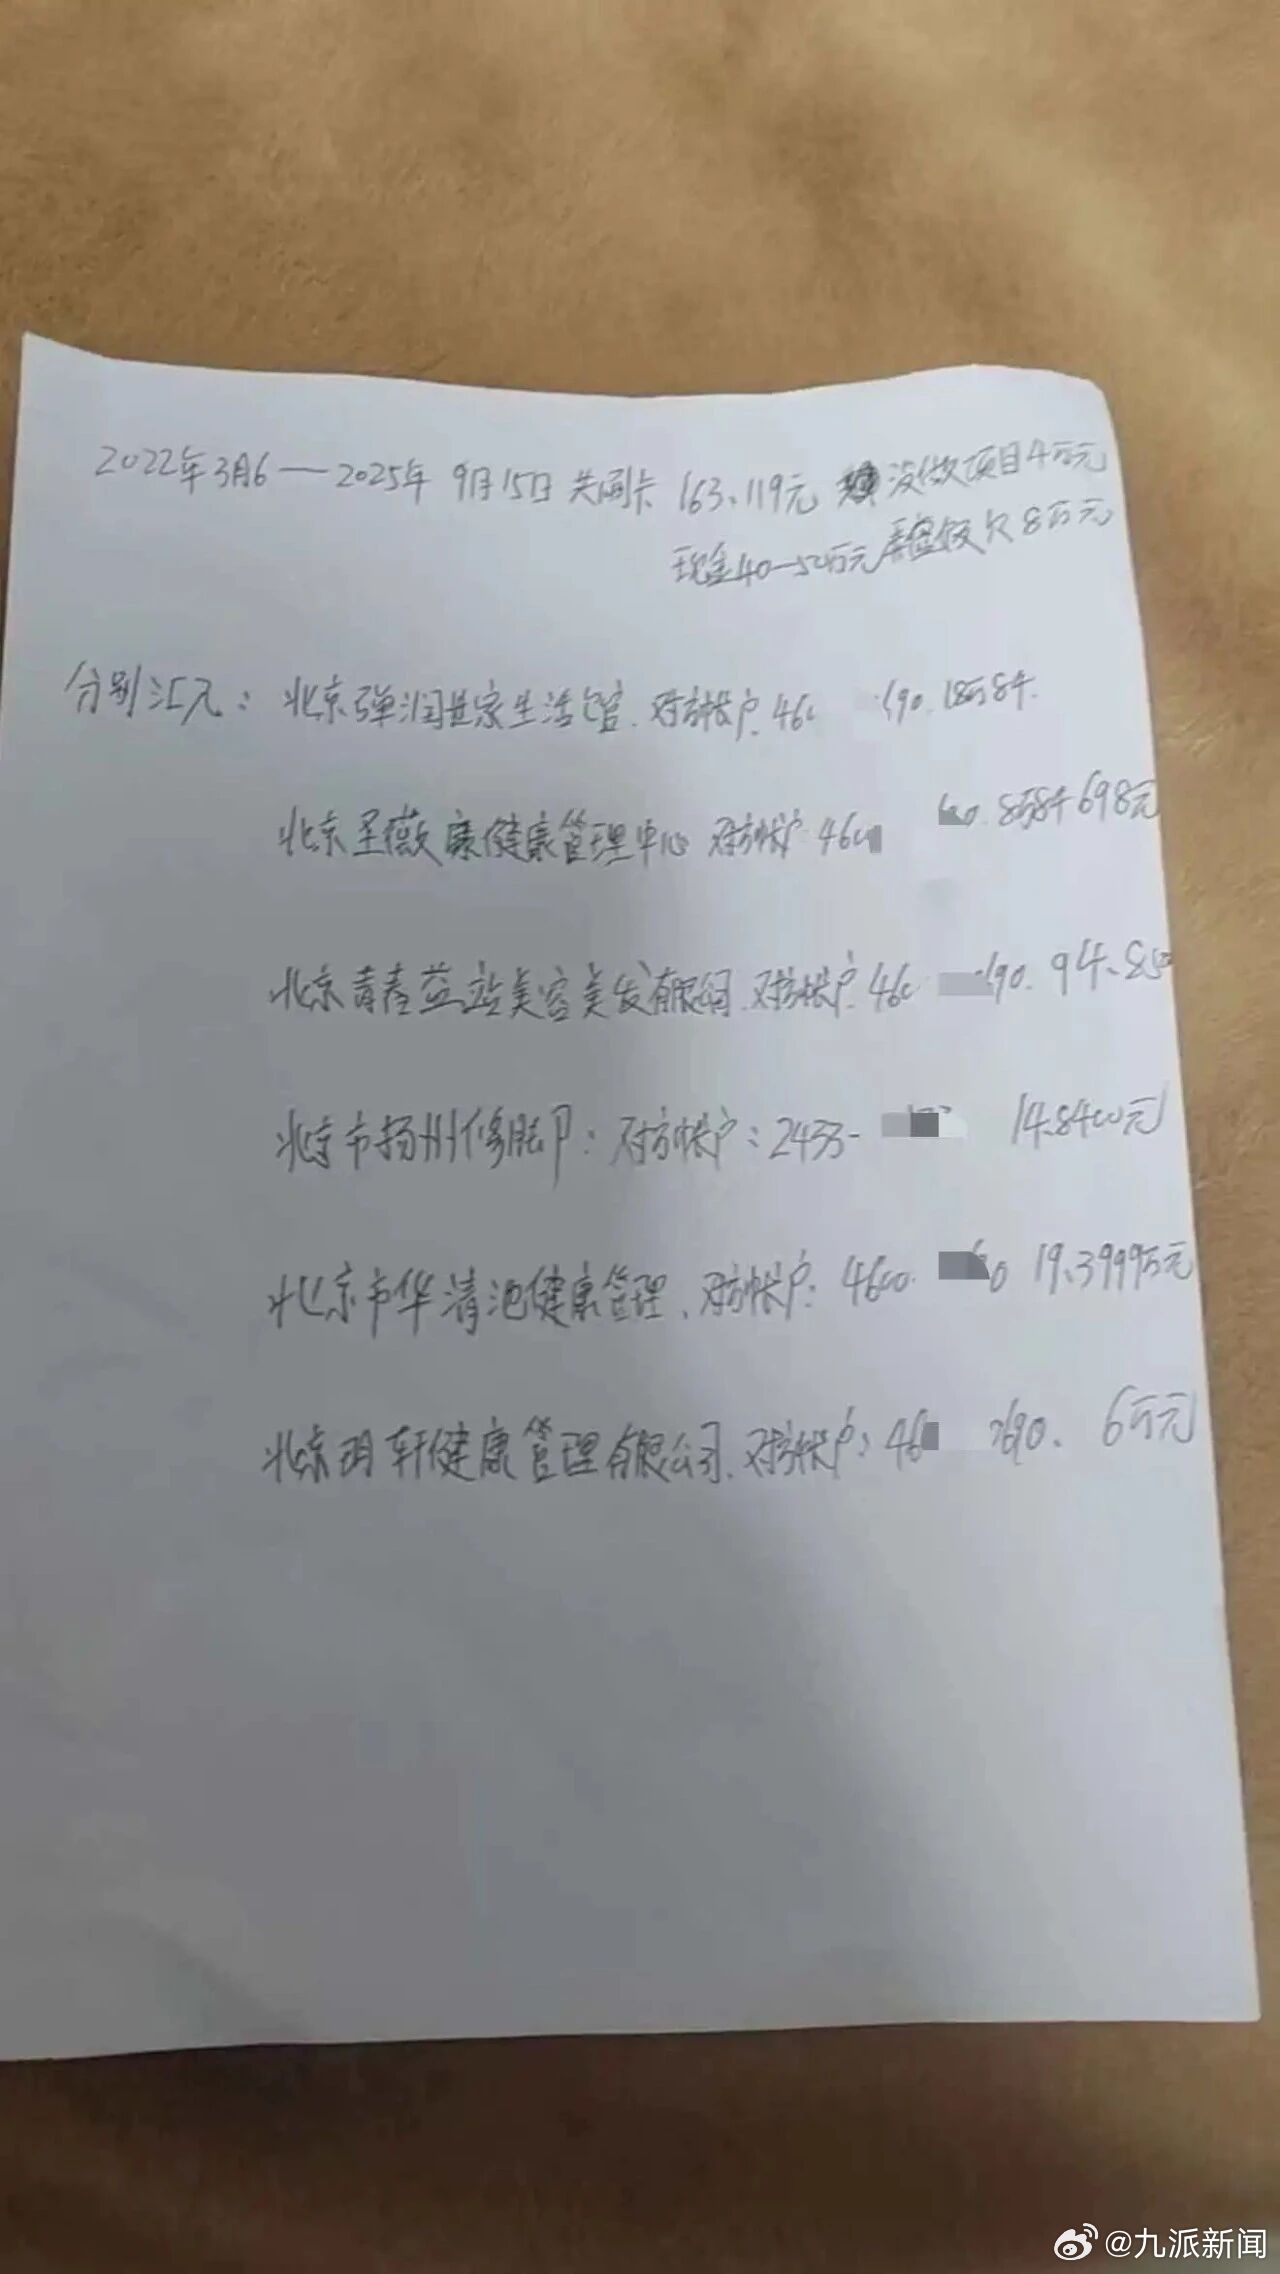 2022年3月6—2025年9月15日共刷卡 163、119元 没做项目4万元
现金40-50万元 欠8万元
分别汇入：北京弹润世家生活馆、对方帐户、46 690、18万8千、
北京圣薇康健康管理中心 对方帐户 46 8万8千698元
北京青春益站美容美发有限公司、对方帐户、46 690、94、850
北京市扬州修脚户：对方帐户：2433- 14.8400元
北京市华清池健康管理、对方帐户：4600 0 19.3999万元
北京玥轩健康管理有限公司、对方帐户：46 690、 6万元
@九派新闻